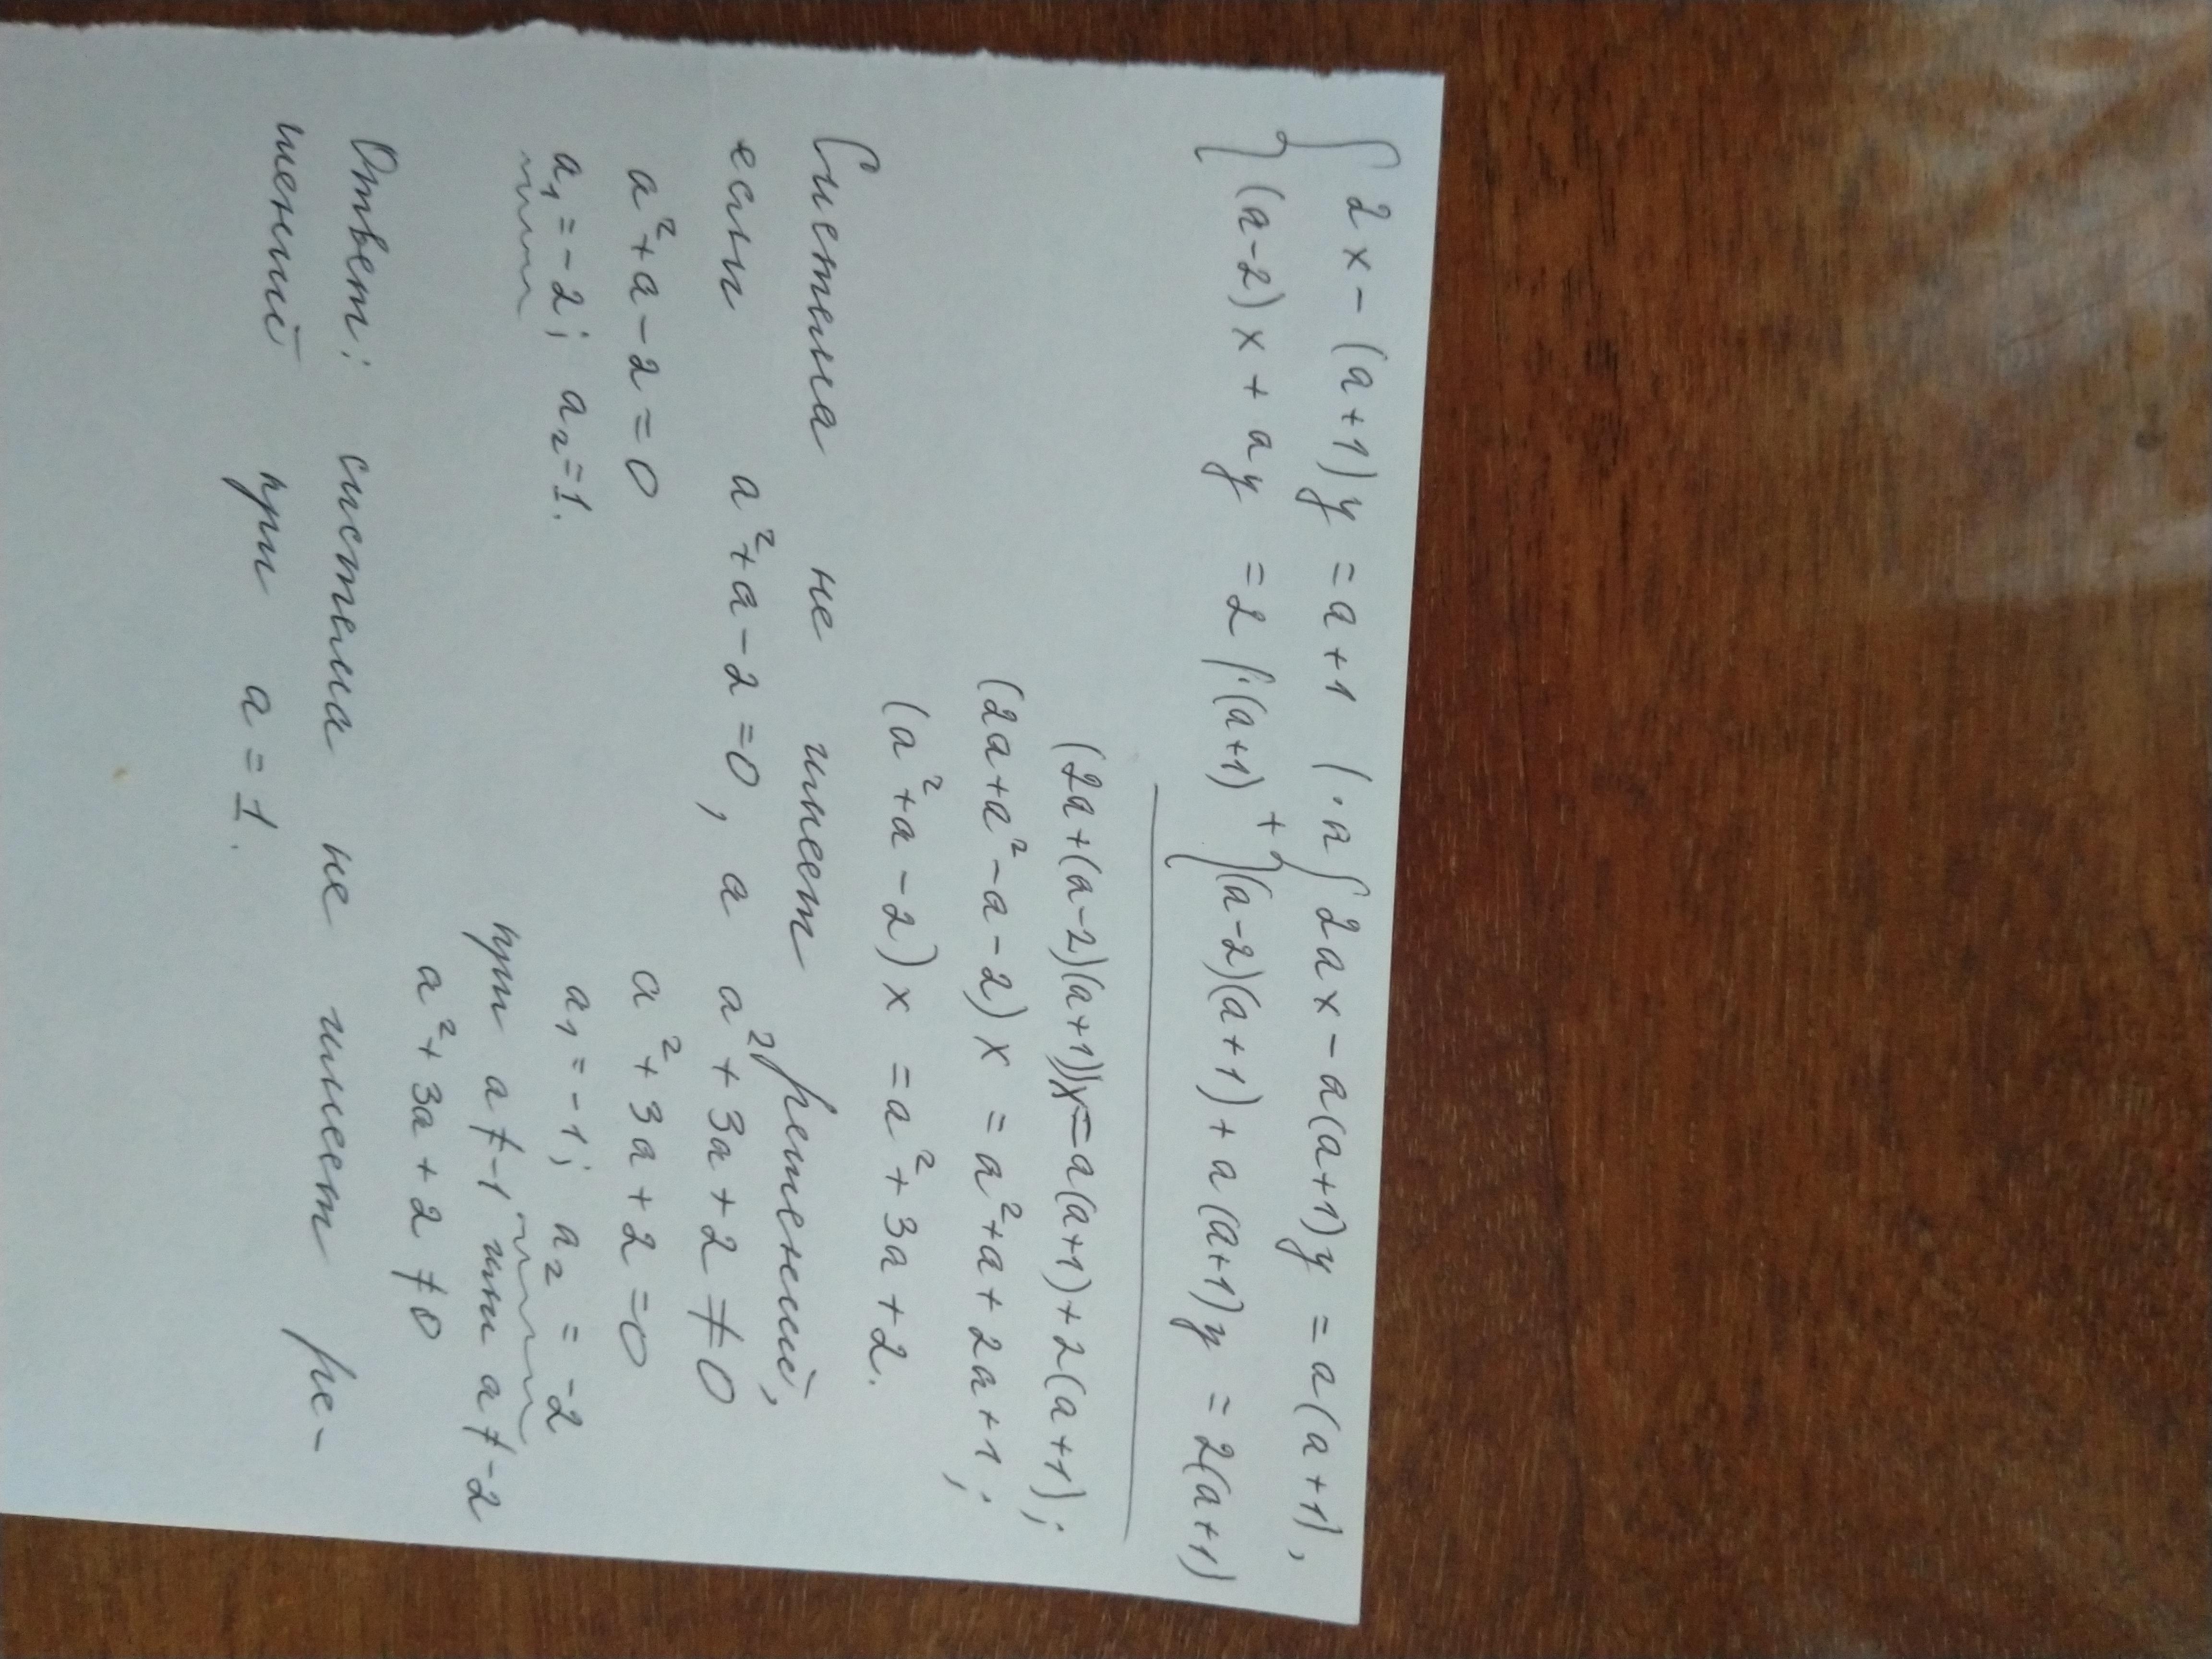 { 2x - (a+1)y = a+1 | · a { 2ax - a(a+1)y = a(a+1),
(a-2)x + ay = 2 | · (a+1) + (a-2)(a+1) + a(a+1)y = 2(a+1)
(2a+(a-2)(a+1))x = a(a+1)+2(a+1);
(2a+a²-a-2)x = a²+a+2a+1;
(a²+a-2)x = a²+3a+2.
Система не имеет решений,
если a²+a-2=0, а a²+3a+2≠0
a²+a-2=0 a²+3a+2=0
a₁=-2; a₂=1. a₁=-1; a₂=-2
при a≠-1 или a≠-2
a²+3a+2≠0
Ответ: система не имеет ре-
шений при a=1.